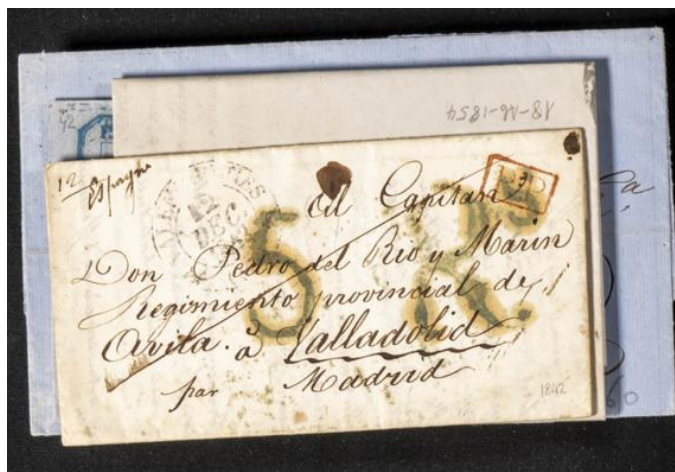 42
18-16-1854
12
Espagne
12
DEC.
5 Rs
PP
Al Capitan
Don Pedro del Rio y Marin
Regimiento provincial de
Avila. à Valladolid
par Madrid
1842
60